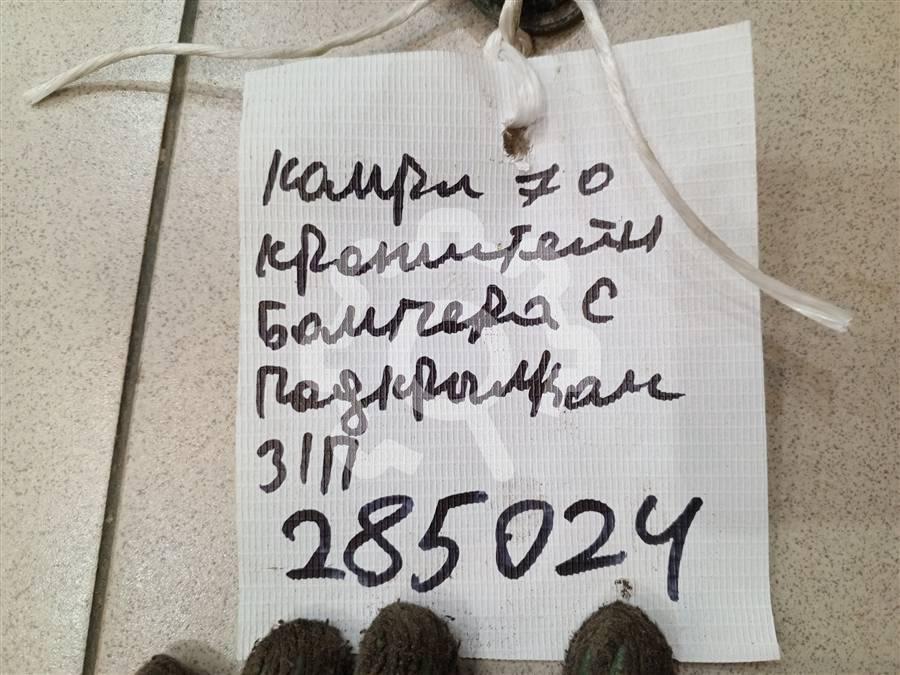 Камри 70
кронштейн
бампера с
подкрылкам
З/П
285024